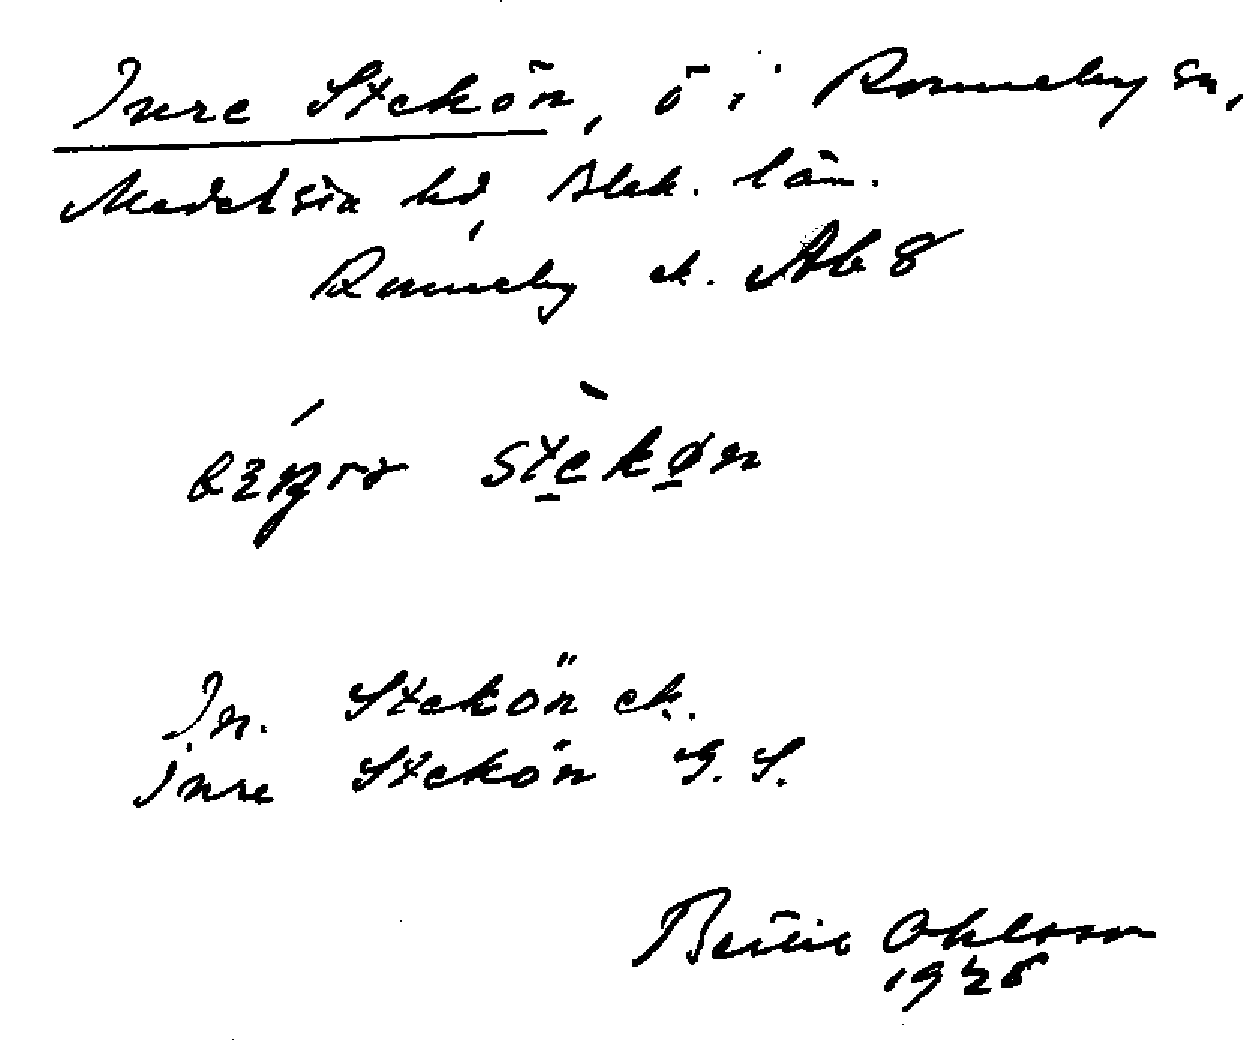 Inre Stekön, ö i Ronneby sn,
Medelsta hd, Blek. län.
Ronneby ek. Ab 8
stekøn
In. Stekön ek.
Inre Stekön G. S.
Bertil Ohlsson
1925